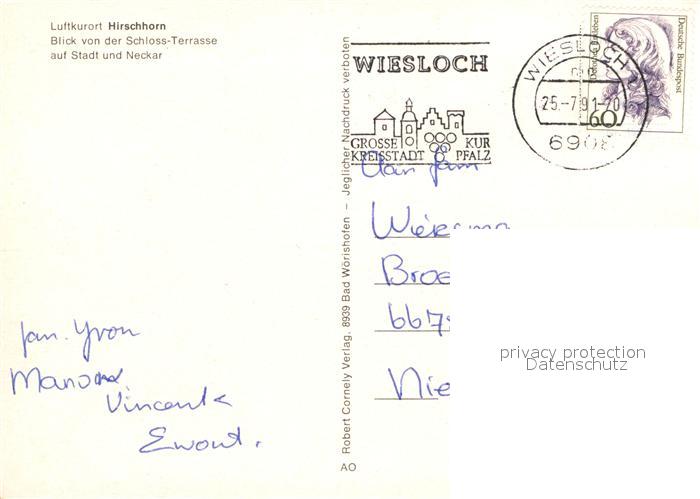 Luftkurort Hirschhorn
Blick von der Schloss-Terrasse
auf Stadt und Neckar
WIESLOCH
GROSSE KREISSTADT
KUR PFALZ
WIESLOCH 1
25.-7.91-20
6908
60
Deutsche Bundespost
Robert Cornely Verlag. 8939 Bad Wörishofen – Jeglicher Nachdruck verboten
AO
Aan fam
Broe
667
Nie
fam. Yvon
Vincent
Ewout.
privacy protection
Datenschutz